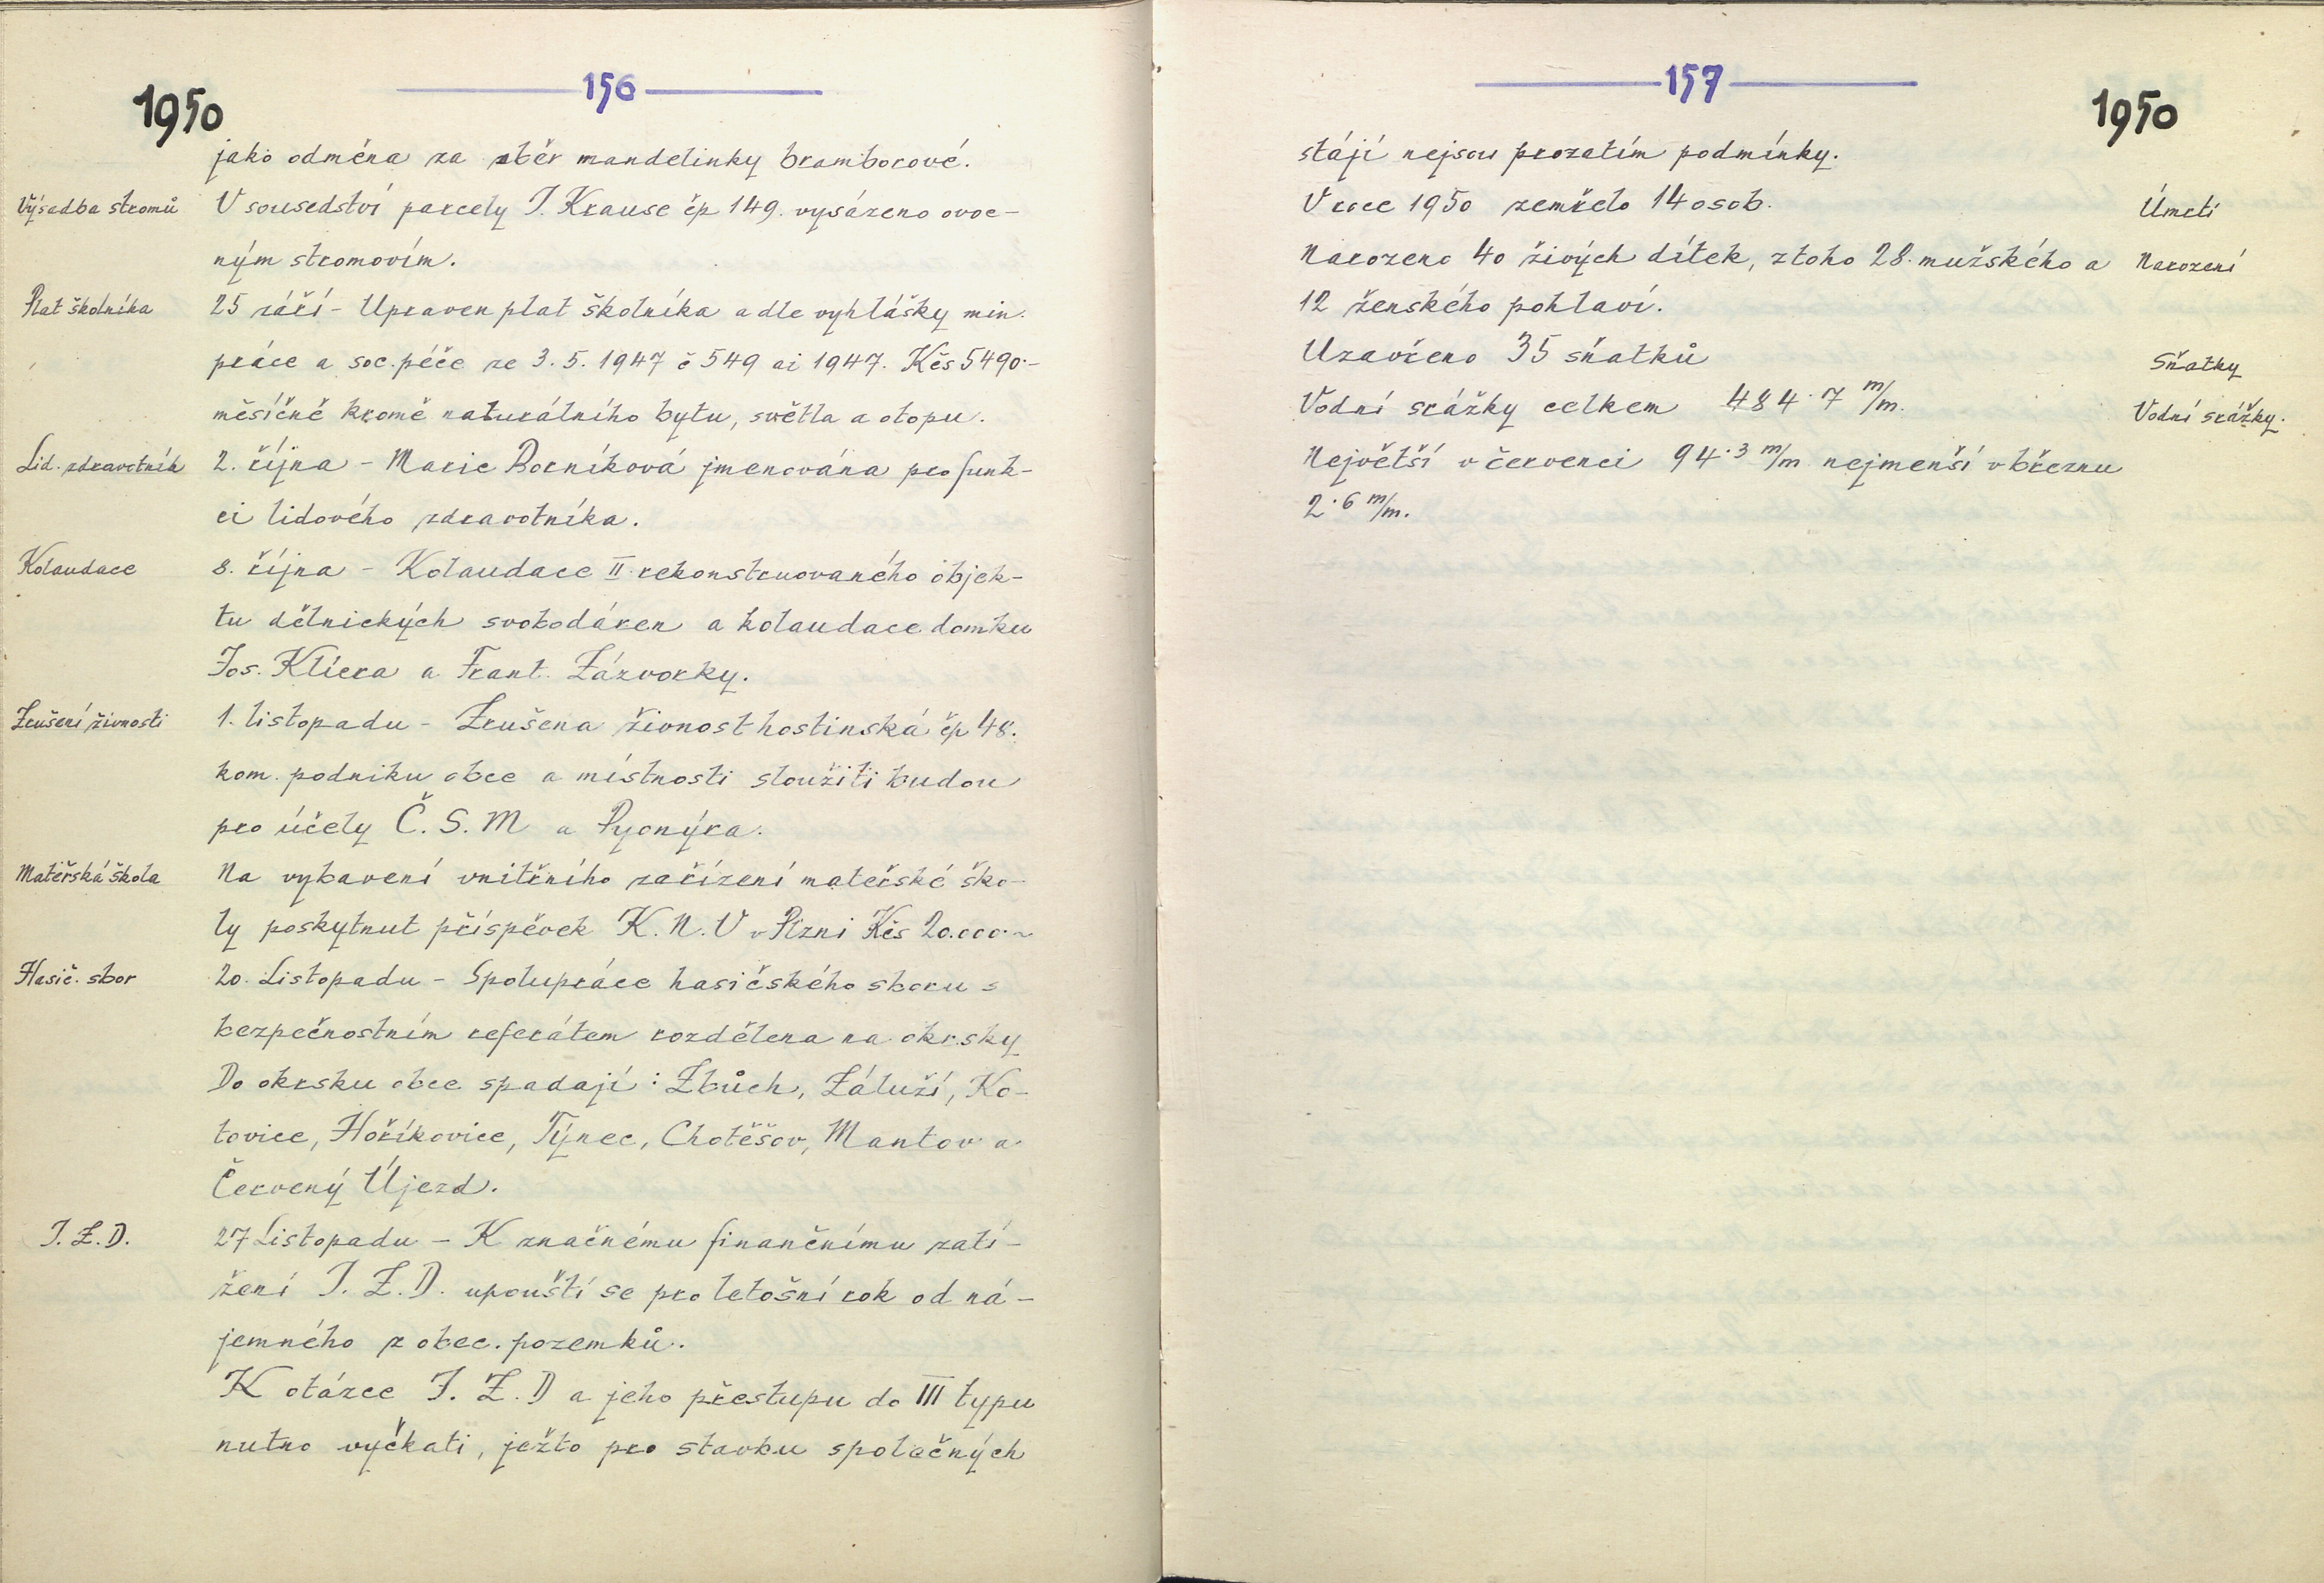 156
1950
jako odměna za sběr mandelinky bramborové.
Výsadba stromů
V sousedství parcely J. Krause čp 149. vysázeno ovoc-
ným stromovím.
Plat školníka
25 září - Upraven plat školníka a dle vyhlášky min.
práce a soc. péče ze 3. 5. 1947 č 549 ai 1947. Kčs 5490·-
měsíčně kromě naturálního bytu, světla a otopu.
Lid. zdravotník
2. října - Marie Borníková jmenována pro funk-
ci lidového zdravotníka.
Kolaudace
8. října - Kolaudace II. rekonstruovaného objek-
tu dělnických svobodáren a kolaudace domku
Jos. Klíera a Frant. Zázvorky.
Zrušení živnosti
1. listopadu - Zrušena živnost hostinská čp 48.
kom. podniku obce a místnosti sloužiti budou
pro účely Č. S. M a Pyonýra.
Mateřská škola
Na vybavení vnitřního zařízení mateřské ško-
ly poskytnut příspěvek K. N. V v Plzni Kčs 20.000·-
Hasič. sbor
20. Listopadu - Spolupráce hasičského sboru s
bezpečnostním referátem rozdělena na okrsky
Do okrsku obce spadají: Zbůch, Záluží, Ko-
tovice, Hoříkovice, Týnec, Chotěšov, Mantov a
Červený Újezd.
J. Z. D.
27 Listopadu - K značnému finančnímu zatí-
žení J. Z. D. upouští se pro letošní rok od ná-
jemného z obec. pozemků.
K otázce J. Z. D a jeho přestupu do III typu
nutno vyčkati, ježto pro stavbu společných
157
1950
stájí nejsou prozatím podmínky.
V roce 1950 zemřelo 14 osob.
Úmrtí
Narozeno 40 živých dítek, z toho 28. mužského a
Narození
12 ženského pohlaví.
Uzavřeno 35 sňatků
Sňatky
Vodní srážky celkem 484·7 m/m.
Vodní srážky.
Největší v červenci 94·3 m/m nejmenší v březnu
2·6 m/m.